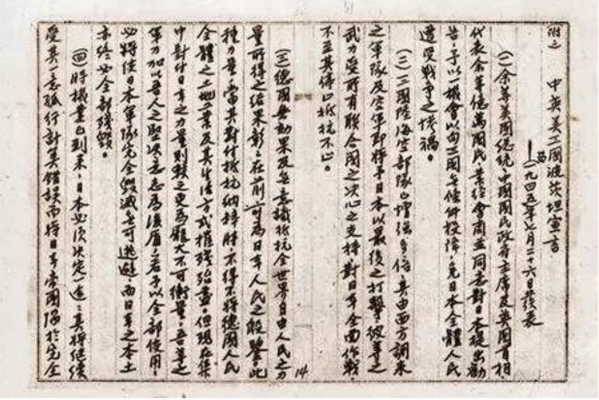 附之 中英美三國波茨坦宣言
——(一九四五年七月二十六日發表
(一)余等美國總統、中國國民政府主席及英國首相,
代表余等億萬國民業經會商並同意對日本提出勸
告:予以一機會以向三國無條件投降,免日本全體人民
遭受戰爭之慘禍。
(二)三國陸海空部隊已增強多倍,具由西方調來
之軍隊及空軍即將予日本以最後之打擊,彼等之
武力受所有聯合國之決心之支持對日本全面作戰,
不至其停止抵抗不止。
14
(三)德國無効果及無意識抵抗全世界自由人民之力
量所得之結果彰彰在前,可為日本人民之殷鑒,此
種力量當其對付抵抗納粹時,不得不將德國人民
全體之土地工業及其生活方式摧殘殆盡。但現在集
中對付日本之力量則較之更為龐大不可衡量,吾等之
軍力加以吾人之堅決意志為後盾,若予以全部使用,
必將使日本軍隊完全毀滅無可逃避,而日本之本土
亦終必全部殘毀。
(四)時機業已到來,日本必須決定一途:其將繼續
受其一意孤行計算錯誤而將日本帝國陷於完全